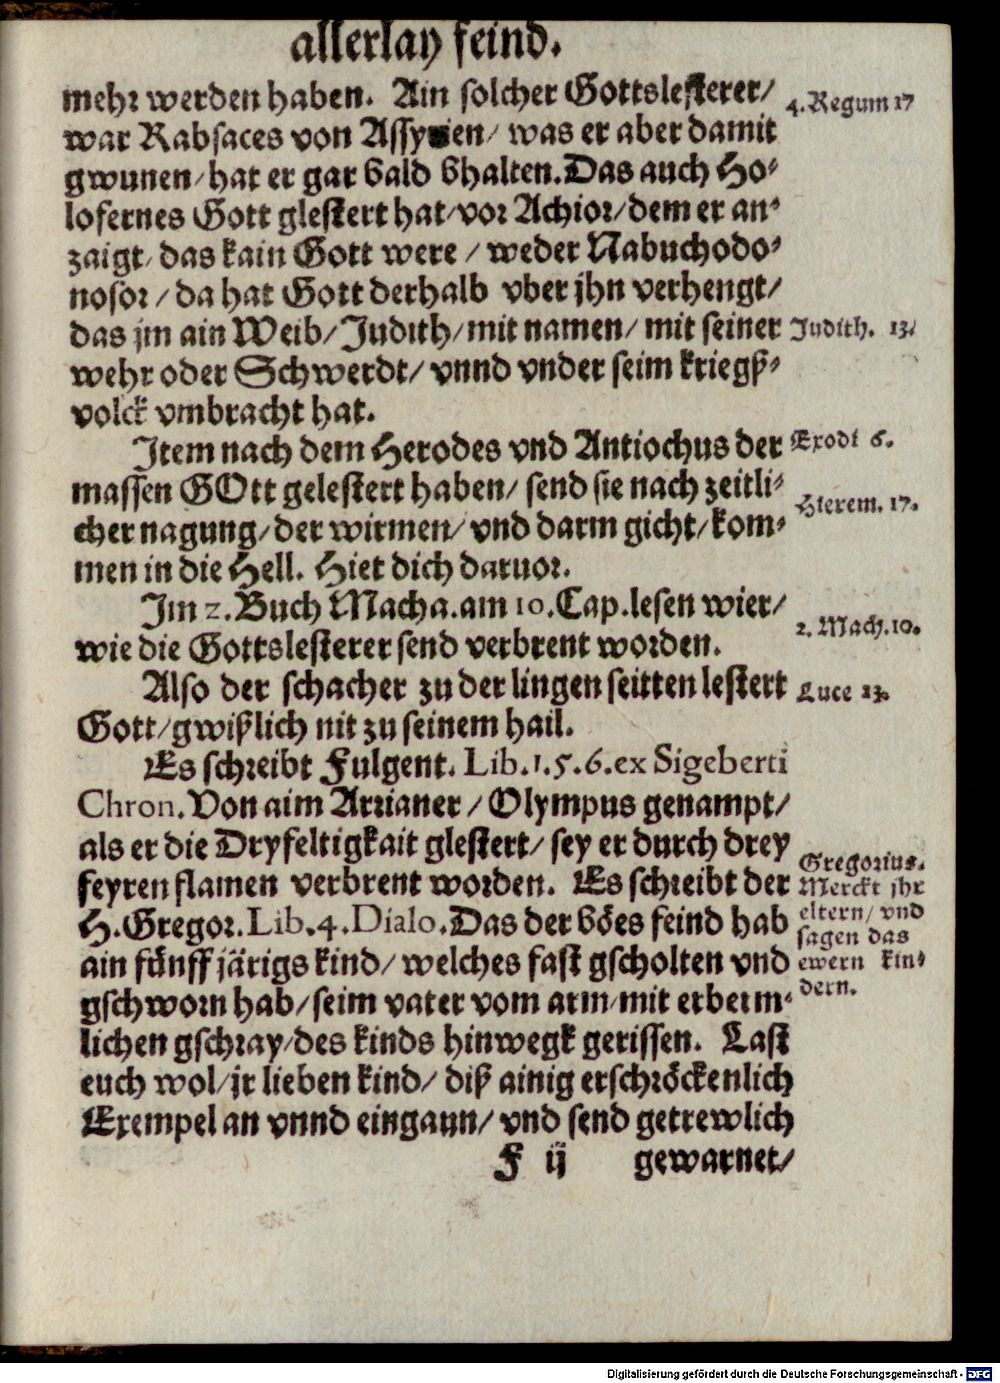 allerlay feind.
mehr werden haben. Ain solcher Gottslesterer/
4. Regum 17
war Rabsaces von Assyrien/ was er aber damit
gwunen/ hat er gar bald bhalten. Das auch Ho-
lofernes Gott glestert hat/ vor Achior/ dem er an-
zaigt/ das kain Gott were / weder Nabuchodo-
nosor / da hat Gott derhalb vber jhn verhengt/
das jm ain Weib/ Judith/ mit namen/ mit seiner
Judith. 13.
wehr oder Schwerdt/ vnnd vnder seim kriegß-
volck vmbracht hat.
Item nach dem Herodes vnd Antiochus der
Exodi 6.
massen GOtt gelestert haben/ send sie nach zeitli-
Hierem. 17.
cher nagung/ der wirmen/ vnd darm gicht/ kom-
men in die Hell. Hiet dich daruor.
Im 2. Buch Macha. am 10. Cap. lesen wier/
2. Mach. 10.
wie die Gottslesterer send verbrent worden.
Also der schacher zu der lingen seitten lestert
Luce 23.
Gott/ gwißlich nit zu seinem hail.
Es schreibt Fulgent. Lib. 1. 5. 6. ex Sigeberti
Chron. Von aim Arrianer / Olympus genampt/
als er die Dryfeltigkait glestert/ sey er durch drey
feyren flamen verbrent worden. Es schreibt der
H. Gregor. Lib. 4. Dialo. Das der böes feind hab
ain fünff järigs kind/ welches fast gscholten vnd
gschworn hab/ seim vater vom arm/ mit erberm-
lichen gschray/ des kinds hinwegk gerissen. Last
euch wol/ jr lieben kind/ diß ainig erschröckenlich
Exempel an vnnd eingaun/ vnd send getrewlich
Gregorius.
Merckt jhr
eltern/ vnd
sagen das
ewern kin-
dern.
F ij gewarnet/
Digitalisierung gefördert durch die Deutsche Forschungsgemeinschaft - DFG